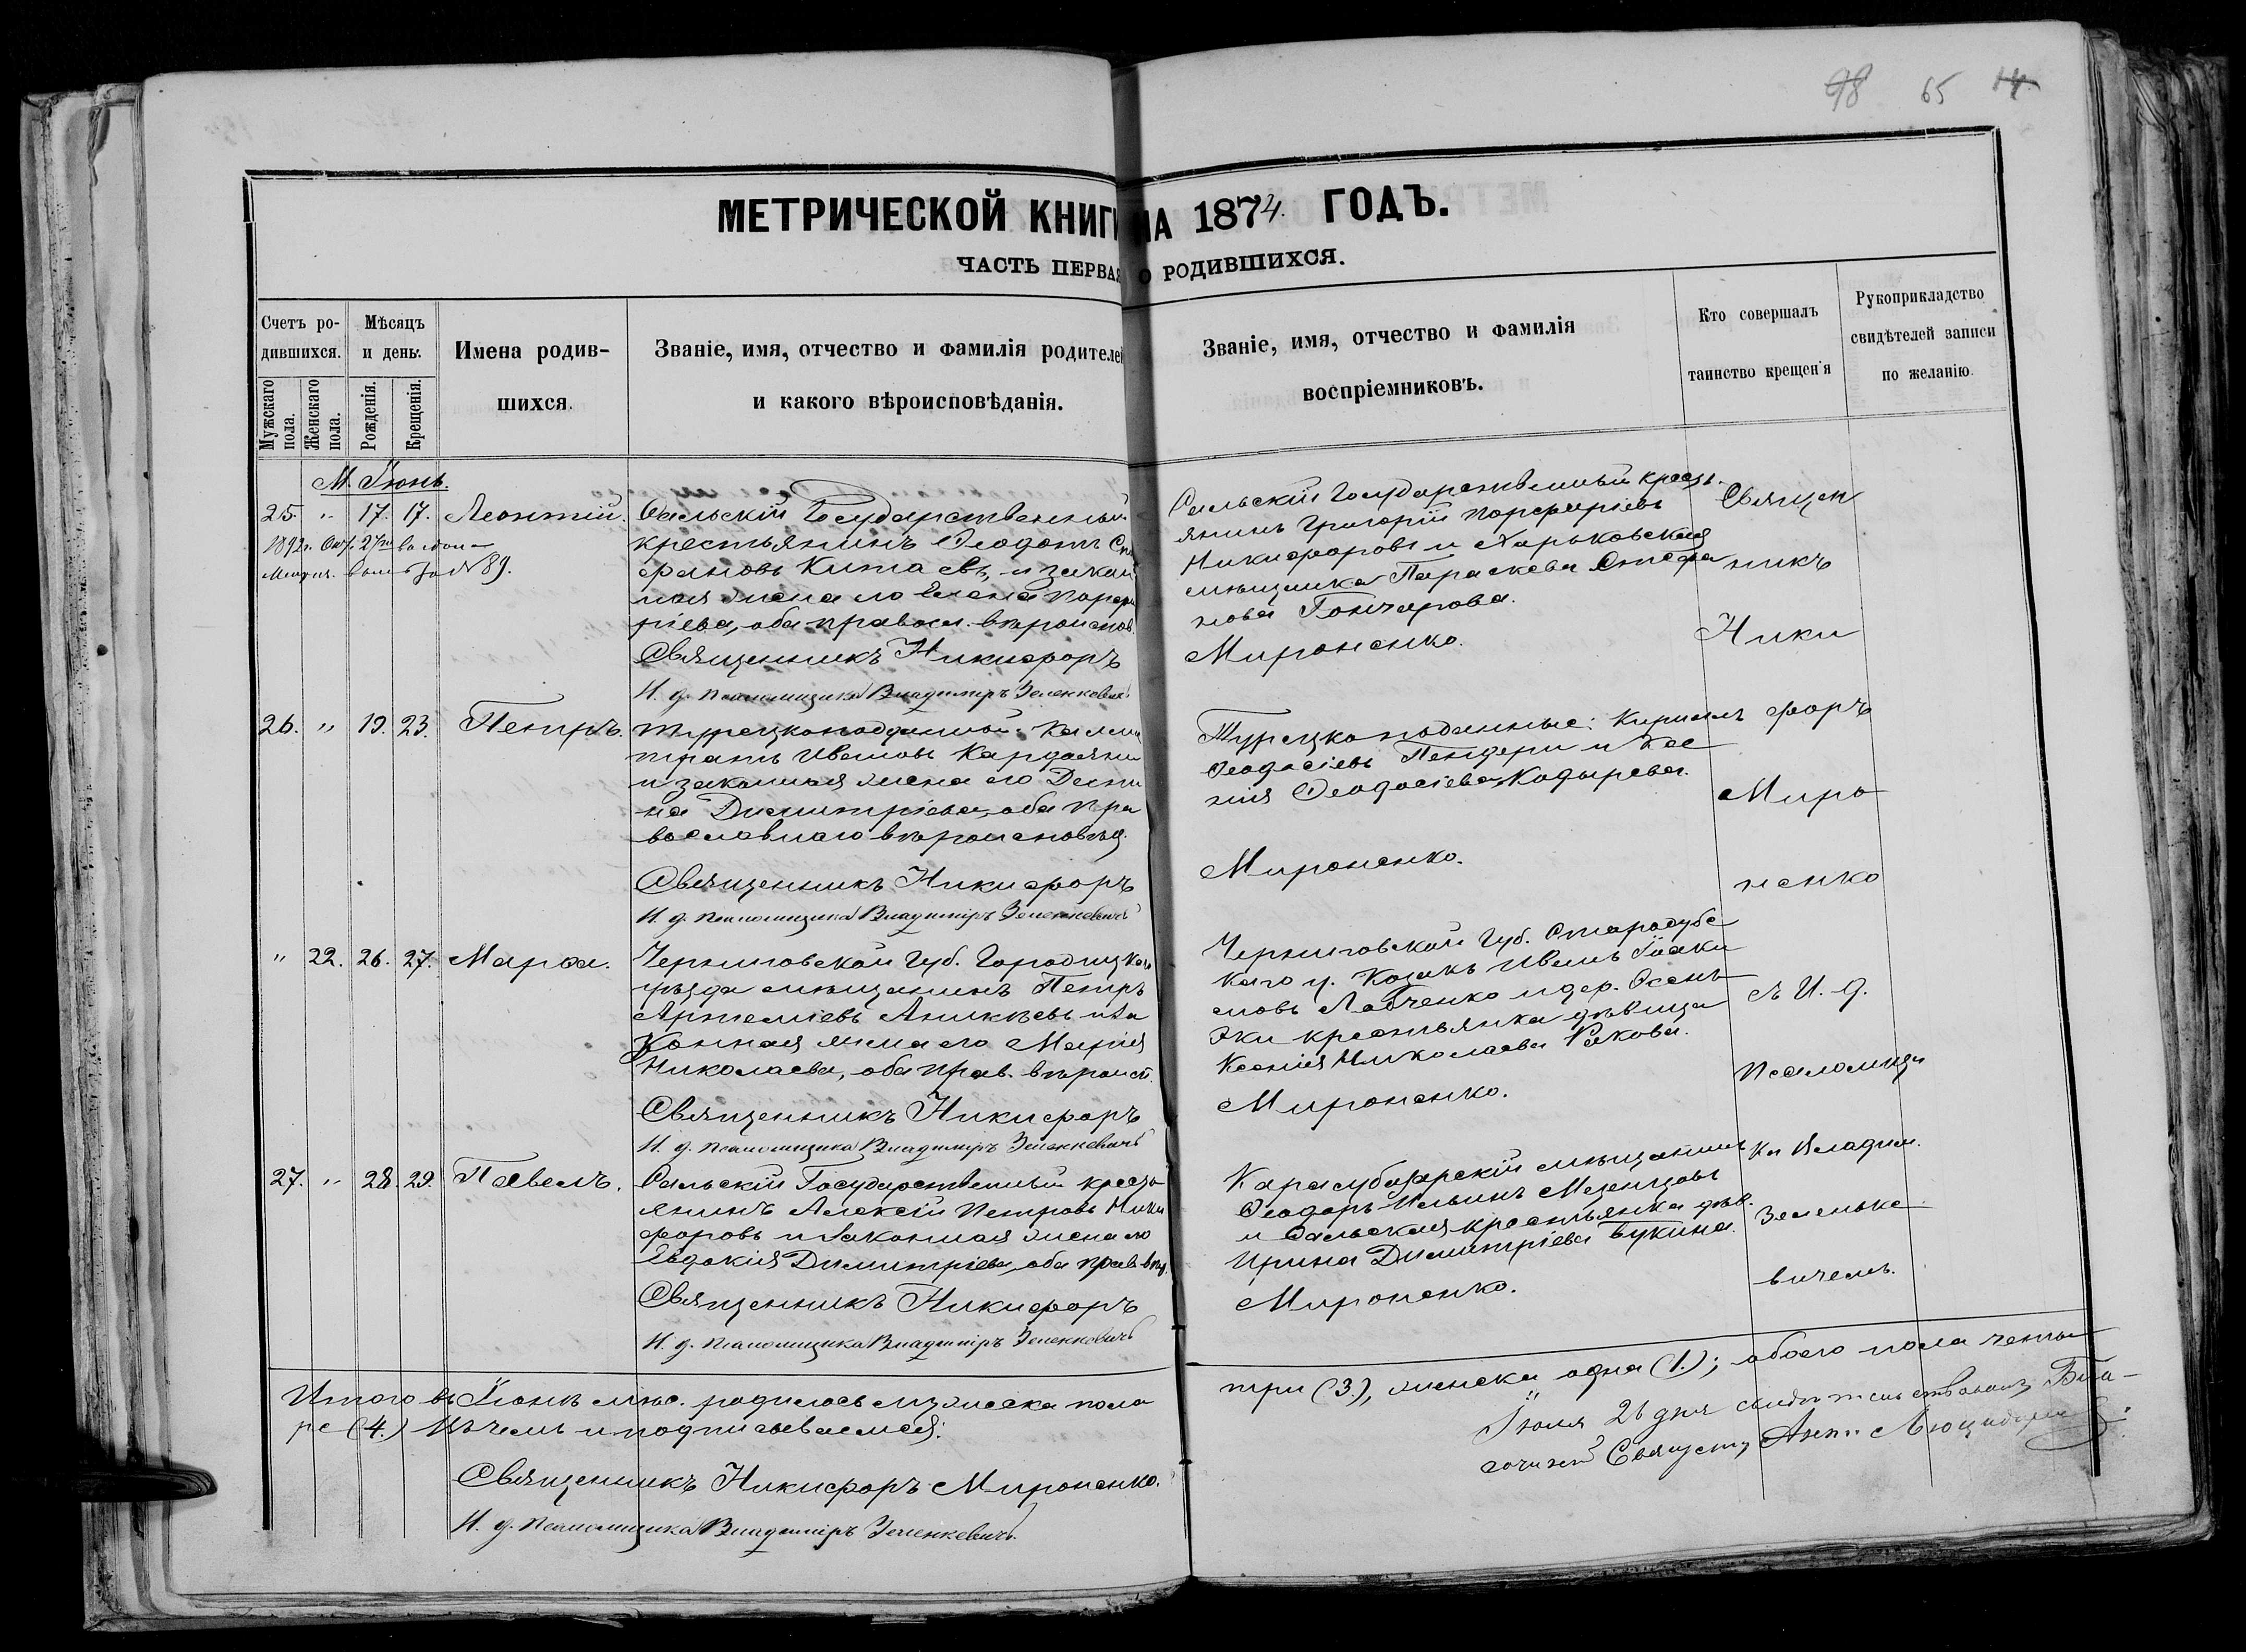 98 65 14
МЕТРИЧЕСКОЙ КНИГИ НА 1874. ГОДЪ.
ЧАСТЬ ПЕРВАЯ О РОДИВШИХСЯ.
Счетъ ро-
дившихся.
Мужскаго пола.
Женскаго пола.
Мѣсяцъ
и день.
Рожденія.
Крещенія.
Имена родив-
шихся.
Званіе, имя, отчество и фамилія родителей
и какого вѣроисповѣданія.
Званіе, имя, отчество и фамилія
воспріемниковъ.
Кто совершалъ
таинство крещенія
Рукоприкладство
свидѣтелей записи
по желанію.
М. Іюнь.
25. " 17. 17. Леонтій.
1892г. Окт. 27го
за № 89.
Сальскій Государственный
крестьянинъ Ѳеодотъ Сте
фановъ Китаевъ, и закон
ная жена его Елена Порфи
ріева, оба правосл. вѣроиспов.
Священникъ Никифоръ
И. д. Псаломщика Владиміръ Зеленкевичъ
Сальскій Государственный кресть
янинъ Григорій Порфиріевъ
Никифоровъ и Харьковская
мѣщанка Параскева Стефа
нова Гончарова.
Мироненко.
26. " 19. 23. Петръ.
Турецкоподданный Калли
тратъ Ивановъ Кардаяни
и законная жена его Деспи
на Димитріева, оба пра
вославнаго вѣроисповѣд.
Священникъ Никифоръ
И. д. Псаломщика Владиміръ Зеленкевичъ
Турецкоподанные: Кириллъ
Ѳеодосіевъ Пендери и Кас
нія Ѳеодосіева Кодырева.
Мироненко.
" 22. 26. 27. Марѳа.
Черниговской Губ. Городницкаго
уѣзда мѣщанинъ Петръ
Артеміевъ Аникѣевъ и за
конная жена его Марія
Николаева, оба прав. вѣроисп.
Священникъ Никифоръ
И. д. Псаломщика Владиміръ Зеленкевичъ
Черниговской Губ. Стародубс
каго у. Козакъ Иванъ Іоаки
мовъ Лабченко и дер. Осень
эки крестьянка дѣвица
Ксенія Николаева Ракова.
Мироненко.
27. " 28. 29. Павелъ.
Сальскій Государственный кресть
янинъ Алексій Петровъ Ники
форовъ и законная жена его
Евдокія Димитріева, оба прав. вѣр.
Священникъ Никифоръ
И. д. Псаломщика Владиміръ Зеленкевичъ
Карасубазарскій мѣщанинъ
Ѳеодоръ Ильинъ Мезенцовъ
и Сальская крестьянка дѣв.
Ирина Димитріева Букина.
Мироненко.
Священ
никъ
Ники
форъ
Миро
ненко
съ И. д.
Псаломщи
ка Владим.
Зеленке
вичемъ.
Итого въ Іюнѣ мѣс. родилось мужеска пола
три (3.), женска одна (1.); обоего пола четы
ре (4.) Въ чемъ и подписываемся:
Священникъ Никифоръ Мироненко.
И. д. Псаломщика Владиміръ Зеленкевичъ.
Іюля 26 дня свидѣтельствовалъ Бла-
гочин. Священ.